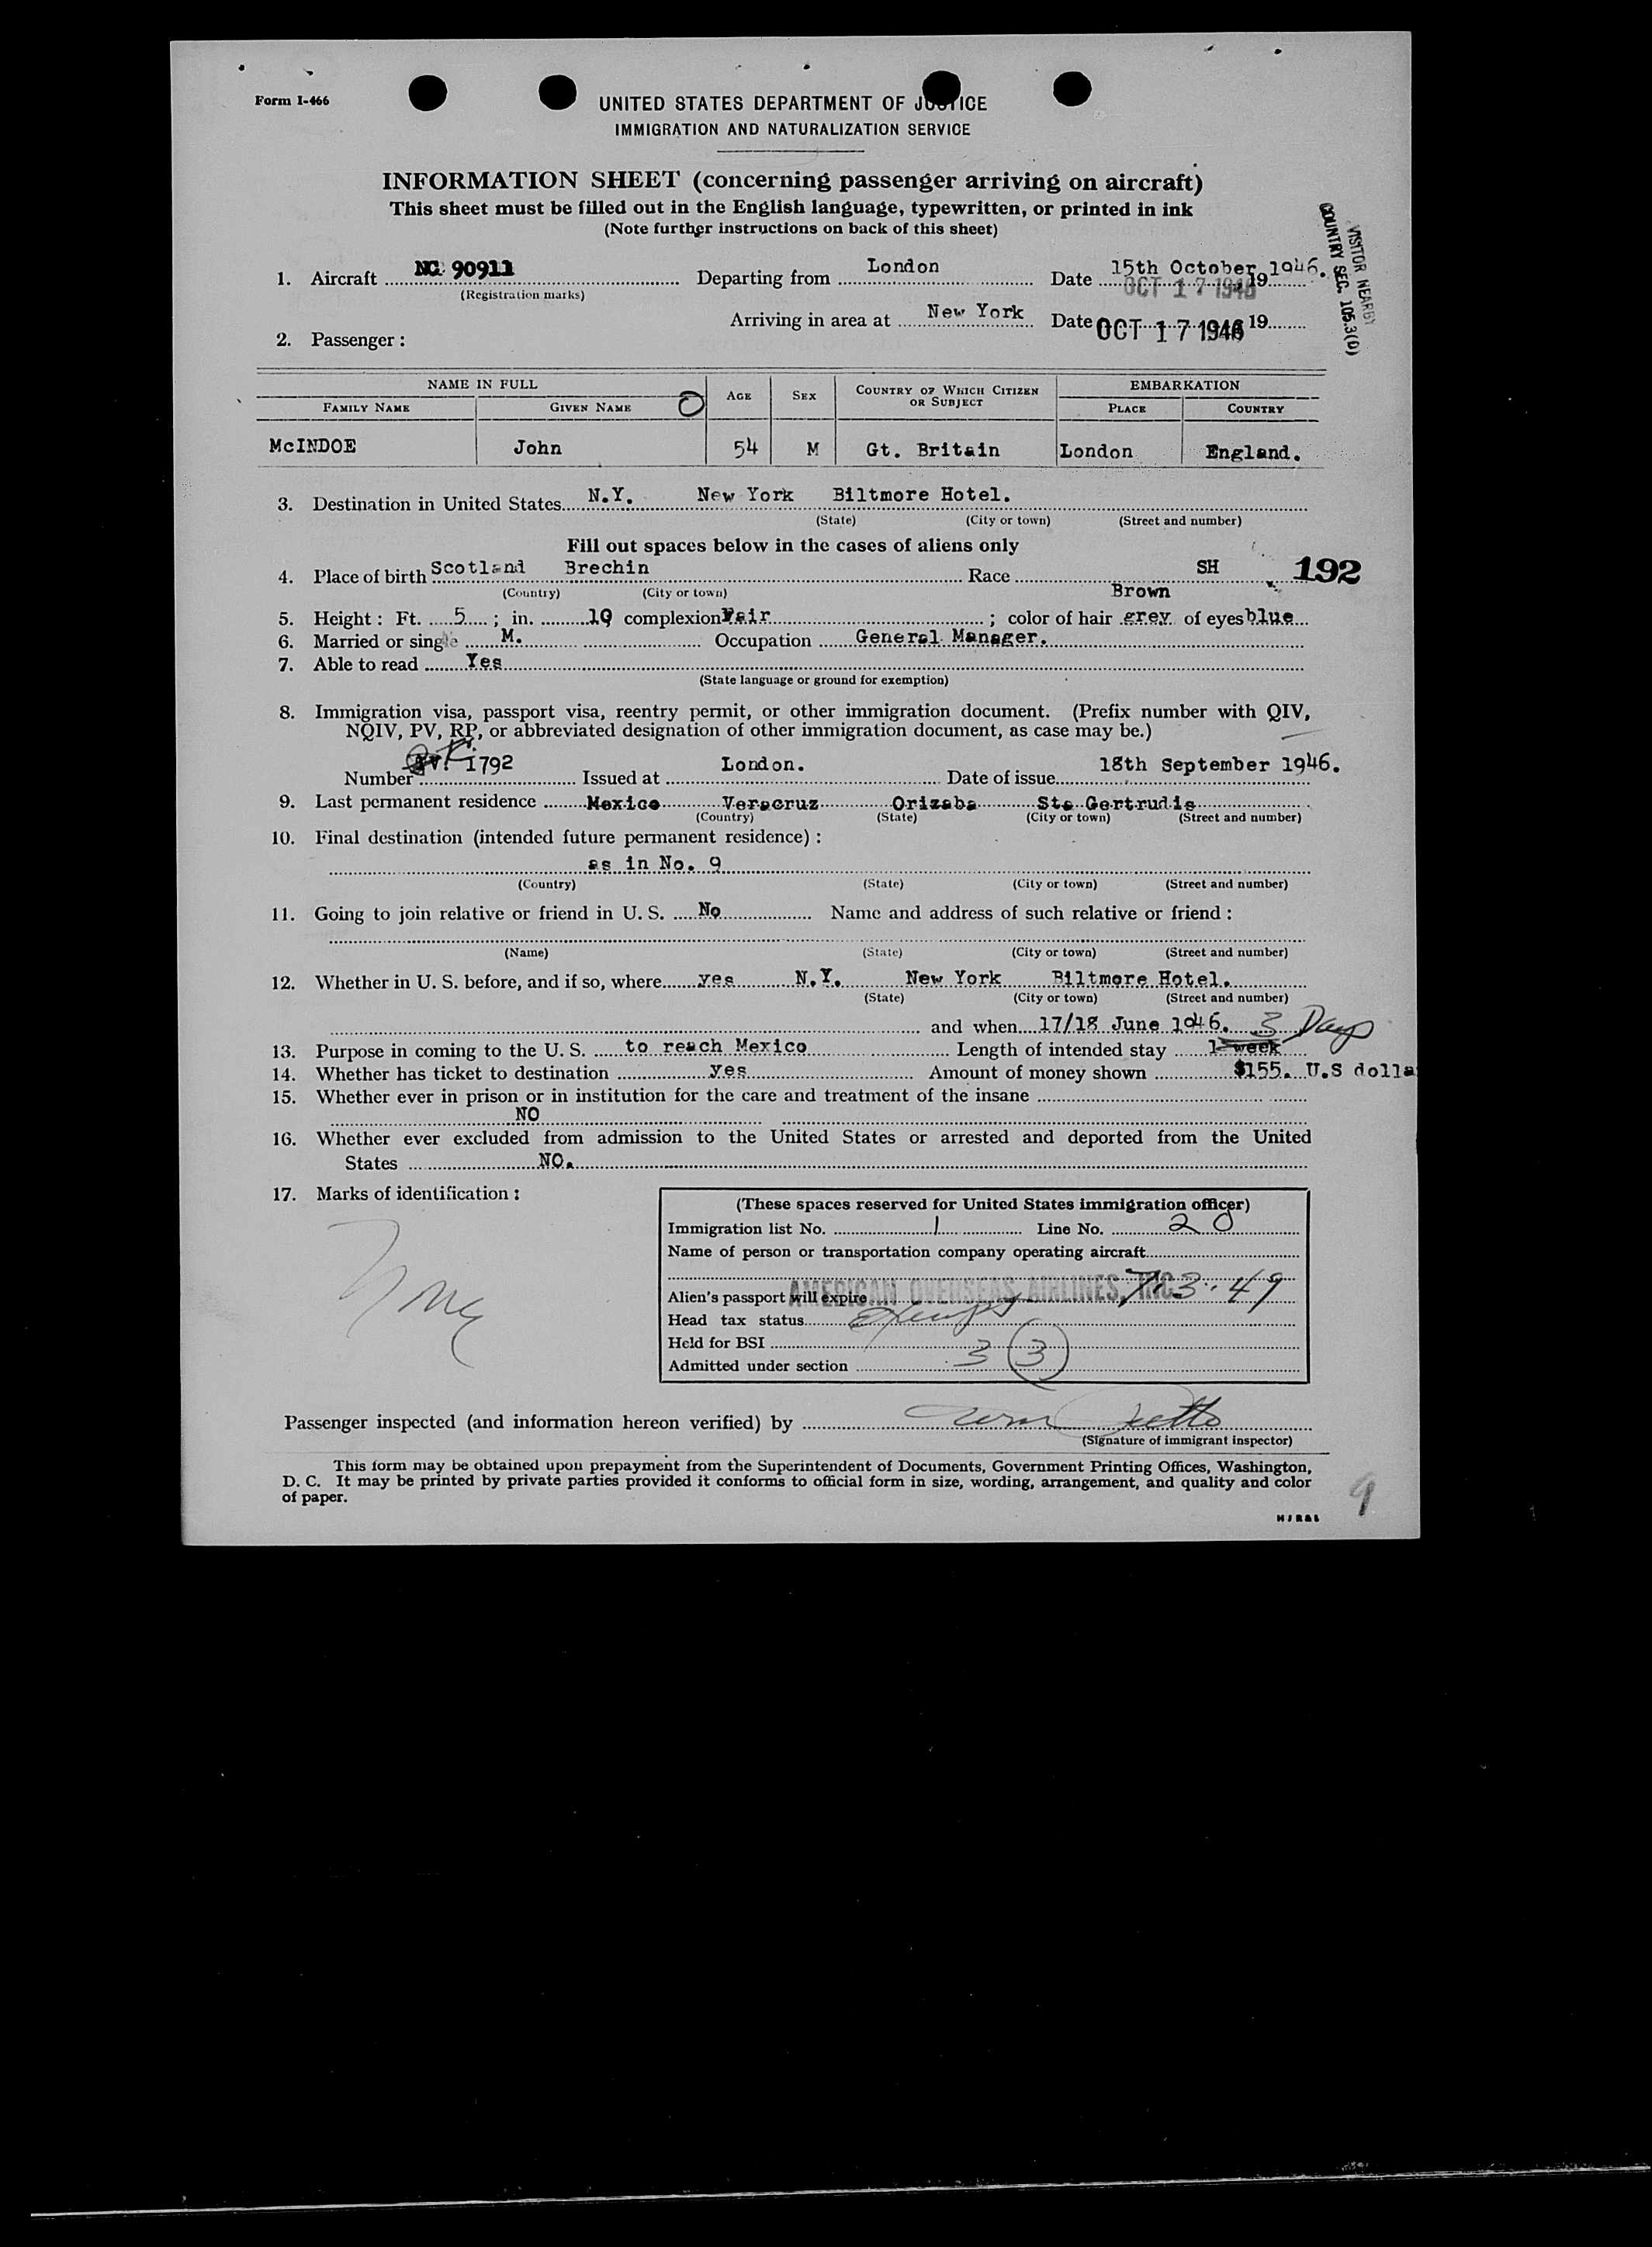 Form I-466
UNITED STATES DEPARTMENT OF JUSTICE
IMMIGRATION AND NATURALIZATION SERVICE
INFORMATION SHEET (concerning passenger arriving on aircraft)
This sheet must be filled out in the English language, typewritten, or printed in ink
(Note further instructions on back of this sheet)
VISITOR NEARBY
COUNTRY SEC. 105.3(D)
1. Aircraft NC 90911 Departing from London Date 15th October 1946. 19
(Registration marks) OCT 17 1946
Arriving in area at New York Date OCT 17 1946 19
2. Passenger:
NAME IN FULL AGE SEX COUNTRY OF WHICH CITIZEN OR SUBJECT EMBARKATION
FAMILY NAME GIVEN NAME PLACE COUNTRY
McINDOE John 54 M Gt. Britain London England.
3. Destination in United States N.Y. New York Biltmore Hotel.
(State) (City or town) (Street and number)
Fill out spaces below in the cases of aliens only
4. Place of birth Scotland Brechin Race SH 192
(Country) (City or town) Brown
5. Height: Ft. 5; in. 10 complexion Fair; color of hair grey of eyes blue
6. Married or single M. Occupation General Manager.
7. Able to read Yes
(State language or ground for exemption)
8. Immigration visa, passport visa, reentry permit, or other immigration document. (Prefix number with QIV,
NQIV, PV, RP, or abbreviated designation of other immigration document, as case may be.)
Number 1792 Issued at London. Date of issue 18th September 1946.
9. Last permanent residence Mexico Veracruz Orizaba Sta Gertrudis
(Country) (State) (City or town) (Street and number)
10. Final destination (intended future permanent residence):
as in No. 9
(Country) (State) (City or town) (Street and number)
11. Going to join relative or friend in U. S. No Name and address of such relative or friend:
(Name) (State) (City or town) (Street and number)
12. Whether in U. S. before, and if so, where yes N.Y. New York Biltmore Hotel.
(State) (City or town) (Street and number)
and when 17/18 June 1946. 3 Days
13. Purpose in coming to the U. S. to reach Mexico Length of intended stay 1 week
14. Whether has ticket to destination yes Amount of money shown $155. U.S dolla
15. Whether ever in prison or in institution for the care and treatment of the insane
NO
16. Whether ever excluded from admission to the United States or arrested and deported from the United
States NO.
17. Marks of identification:
None
(These spaces reserved for United States immigration officer)
Immigration list No. 1 Line No. 20
Name of person or transportation company operating aircraft
AMERICAN OVERSEAS AIRLINES, INC.
Alien's passport will expire 7.3.49
Head tax status Exempt
Held for BSI
Admitted under section 3 (3)
Passenger inspected (and information hereon verified) by
(Signature of immigrant inspector)
This form may be obtained upon prepayment from the Superintendent of Documents, Government Printing Offices, Washington,
D. C. It may be printed by private parties provided it conforms to official form in size, wording, arrangement, and quality and color
of paper.
9